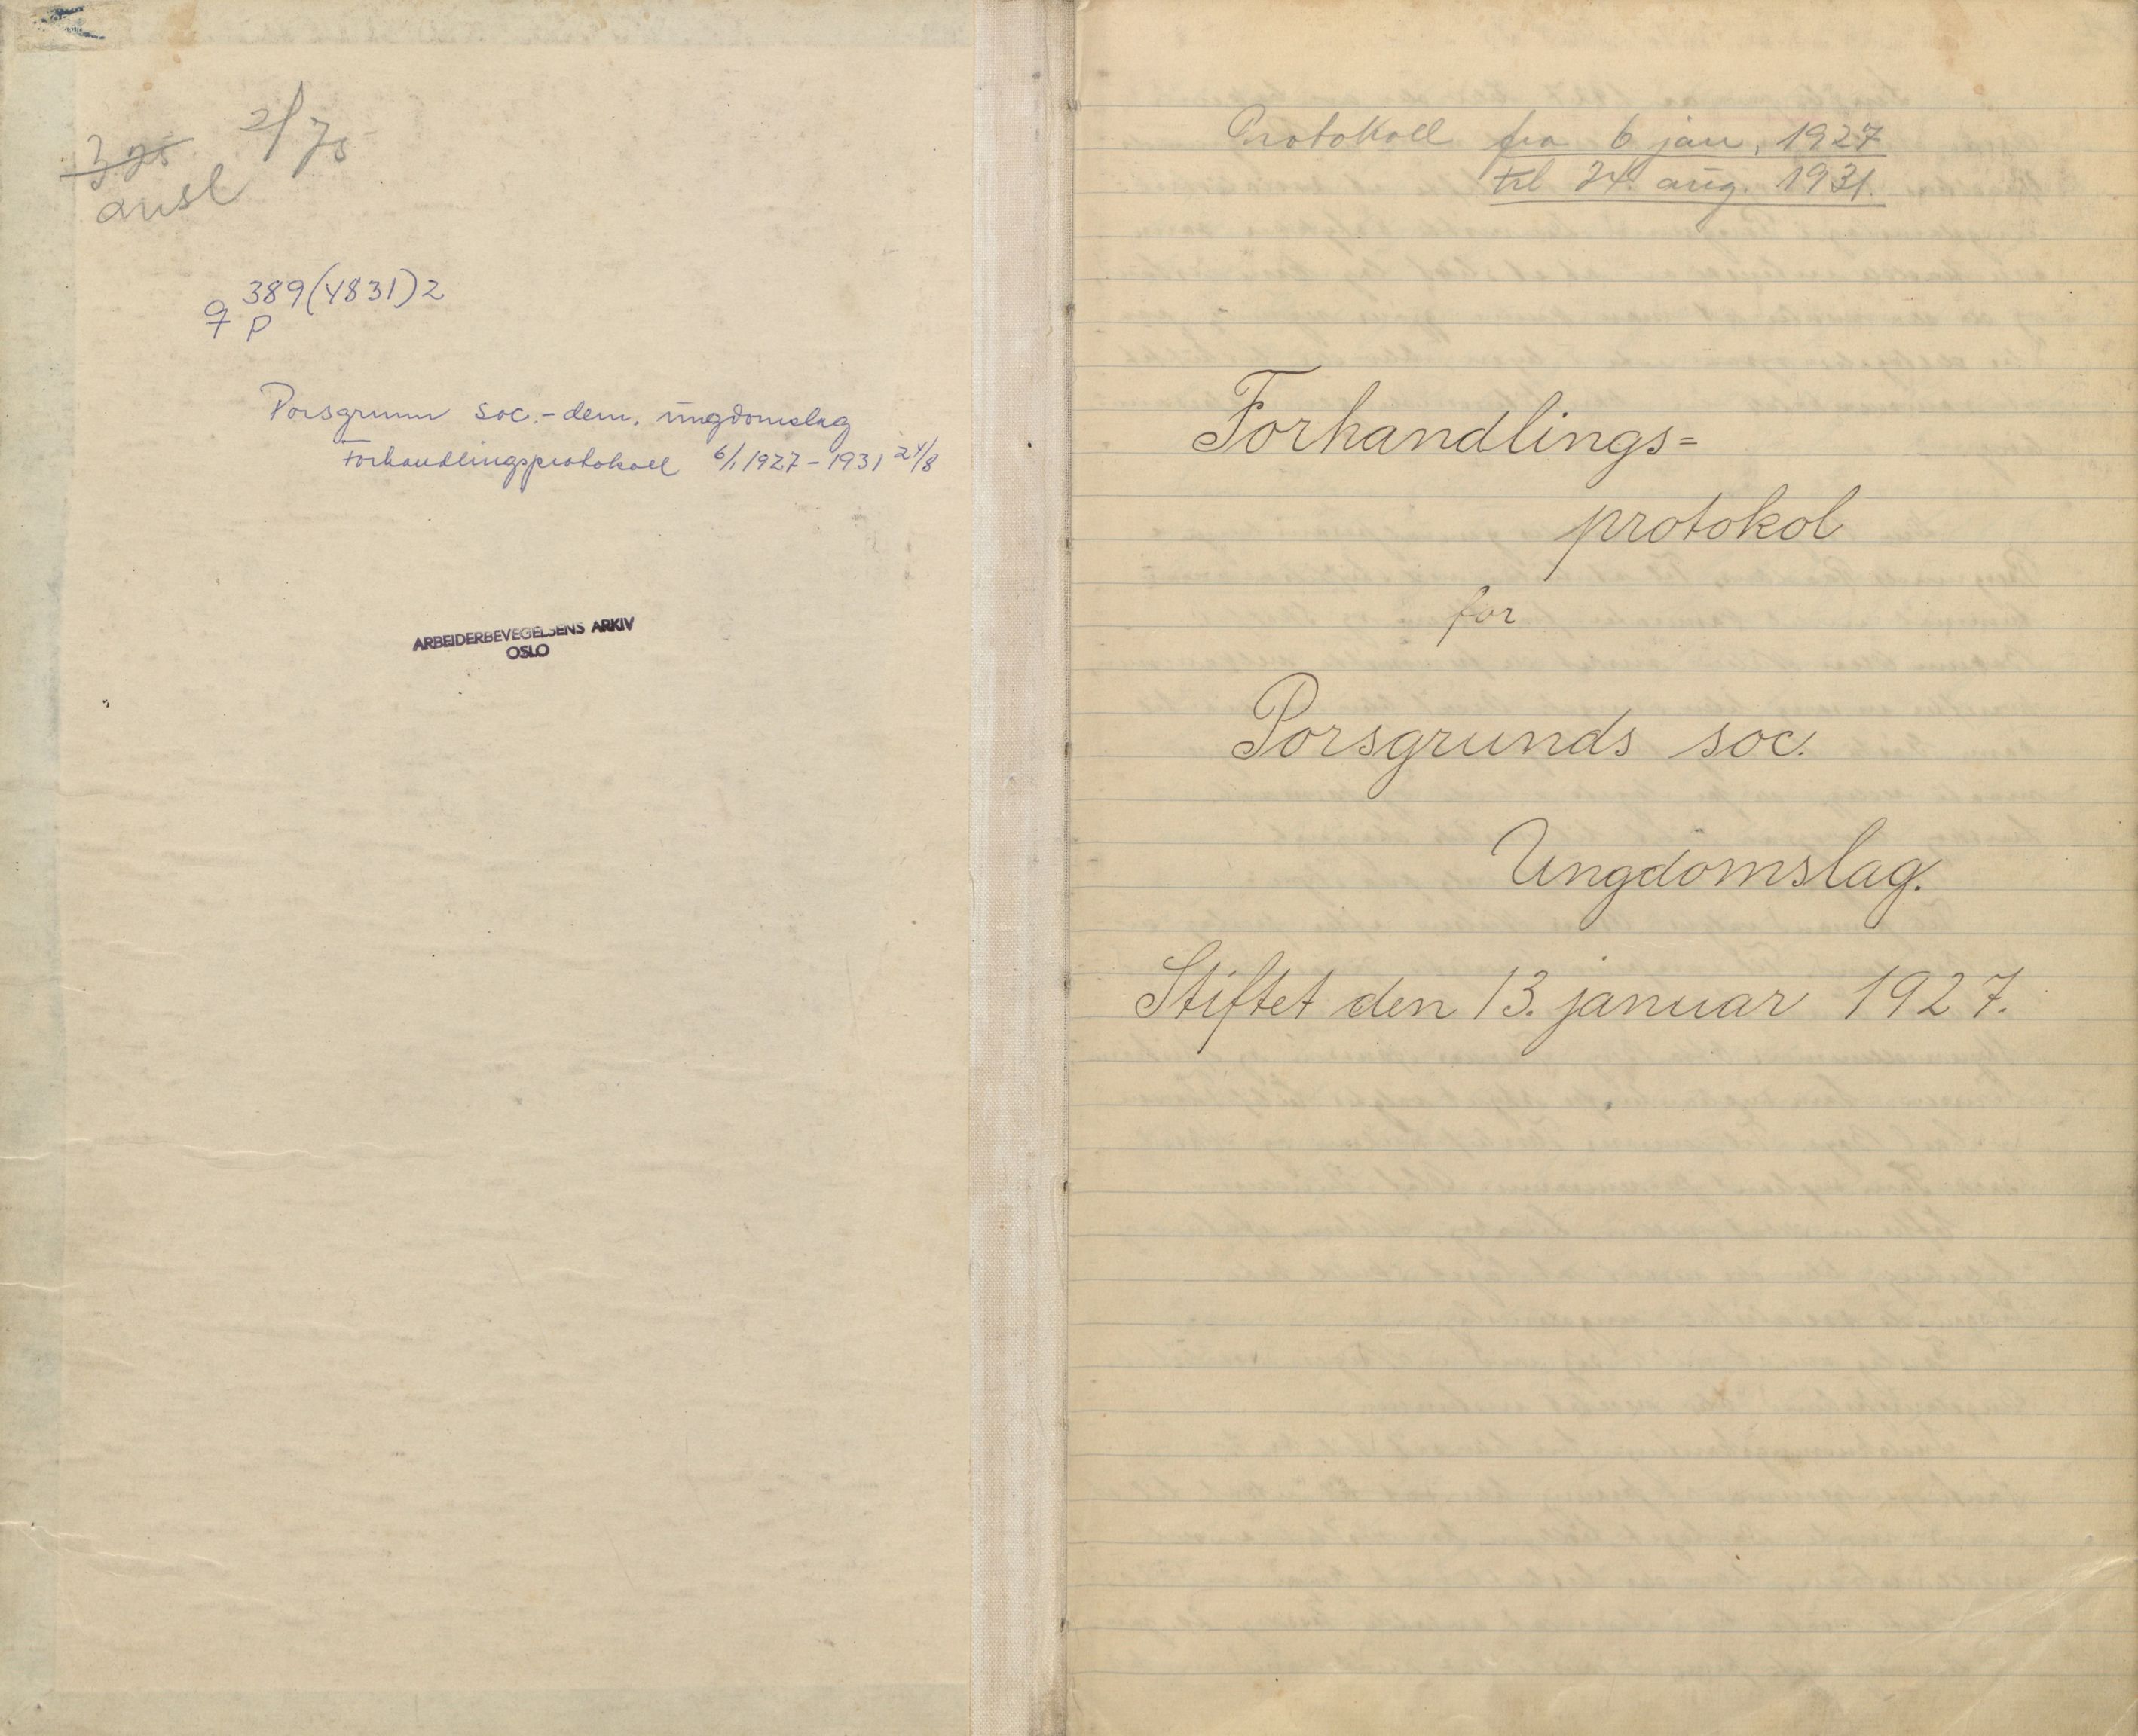 2/75
ausl
389(4831)2
q P
Porsgrunn soc.-dem. ungdomslag
Forhandlingsprotokoll 6/1 1927 - 1931 24/8
ARBEIDERBEVEGELSENS ARKIV
OSLO
Protokoll fra 6 jan. 1927
til 24. aug. 1931.
Forhandlings=
protokol
for
Porsgrunds soc.
Ungdomslag.
Stiftet den 13. januar 1927.